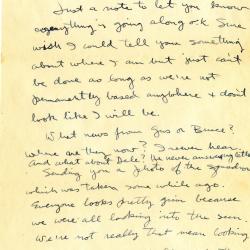 Just a note to let you know
everything's going along o.k. Sure
wish I could tell you something
about where I am but just can't
be done as long as we're not
permanently based anywhere & don't
look like I will be.
What news from Gus or Bruce?
Where are they now? I never hear.
And what about Dele? He never answers
Sending you a photo of the squadron
which was taken some while ago.
Everyone looks pretty grim because
we were all looking into the sun
We're not really that mean looking